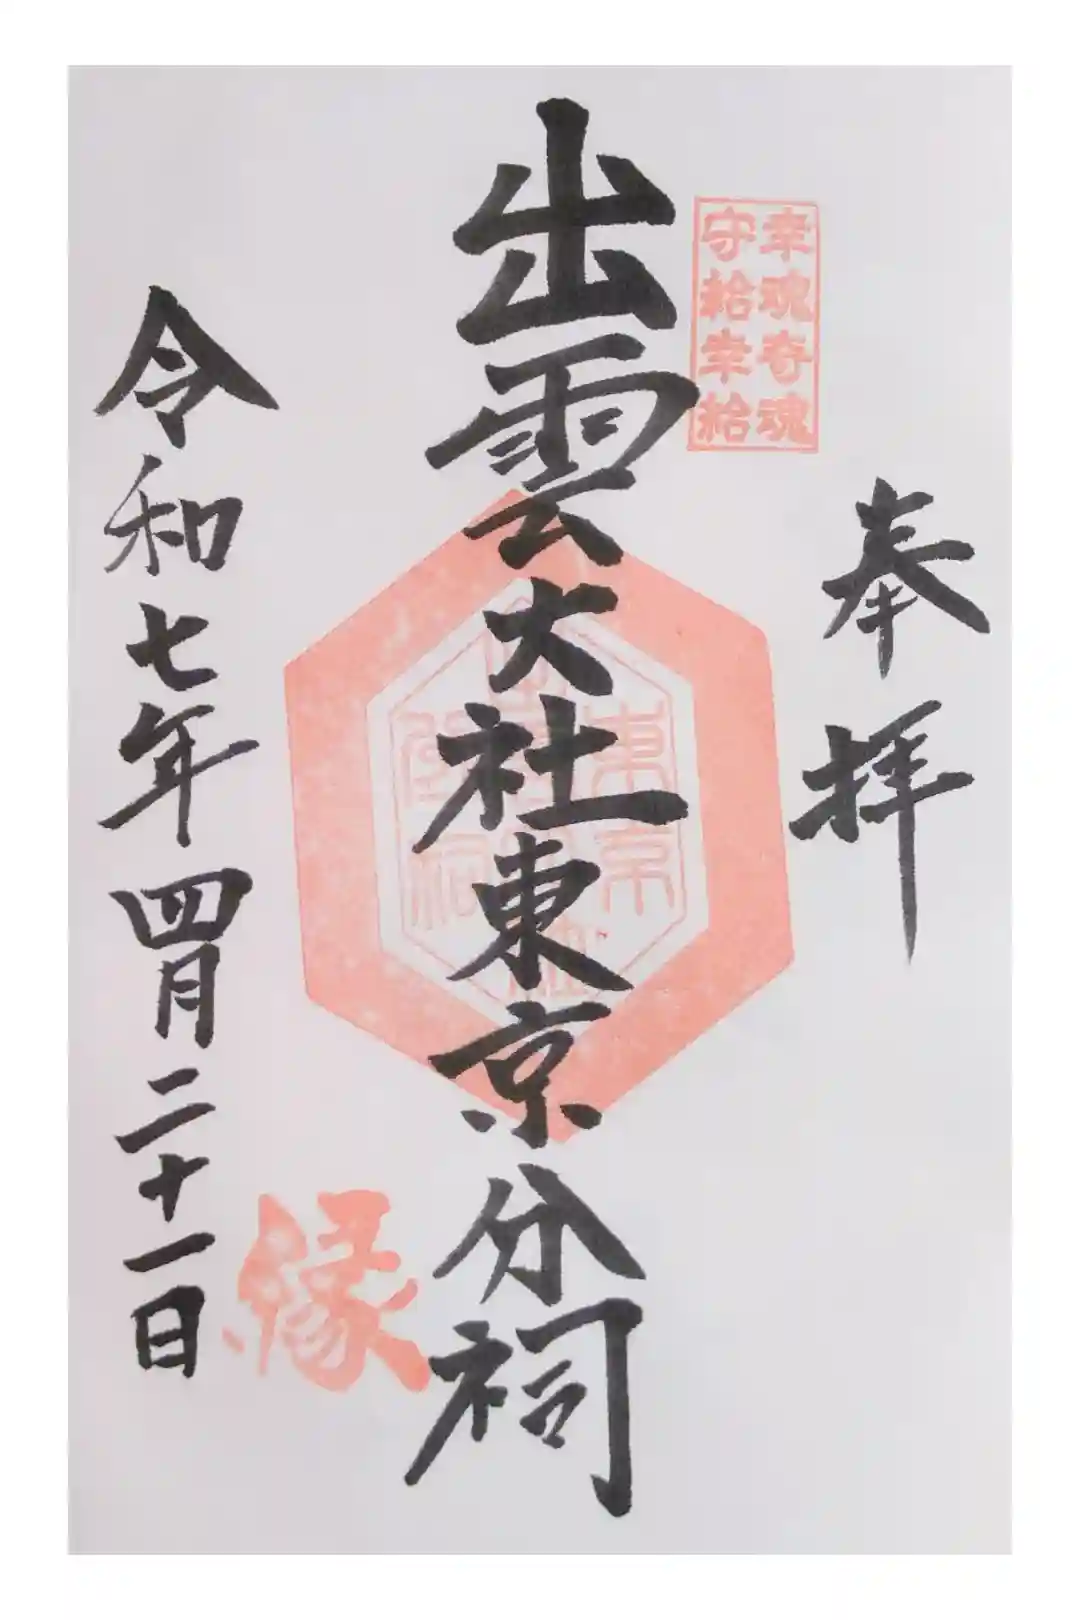 奉拝
幸魂奇魂
守給幸給
出雲大社東京分祠
東京
出雲大社
分祠
縁
令和七年四月二十一日